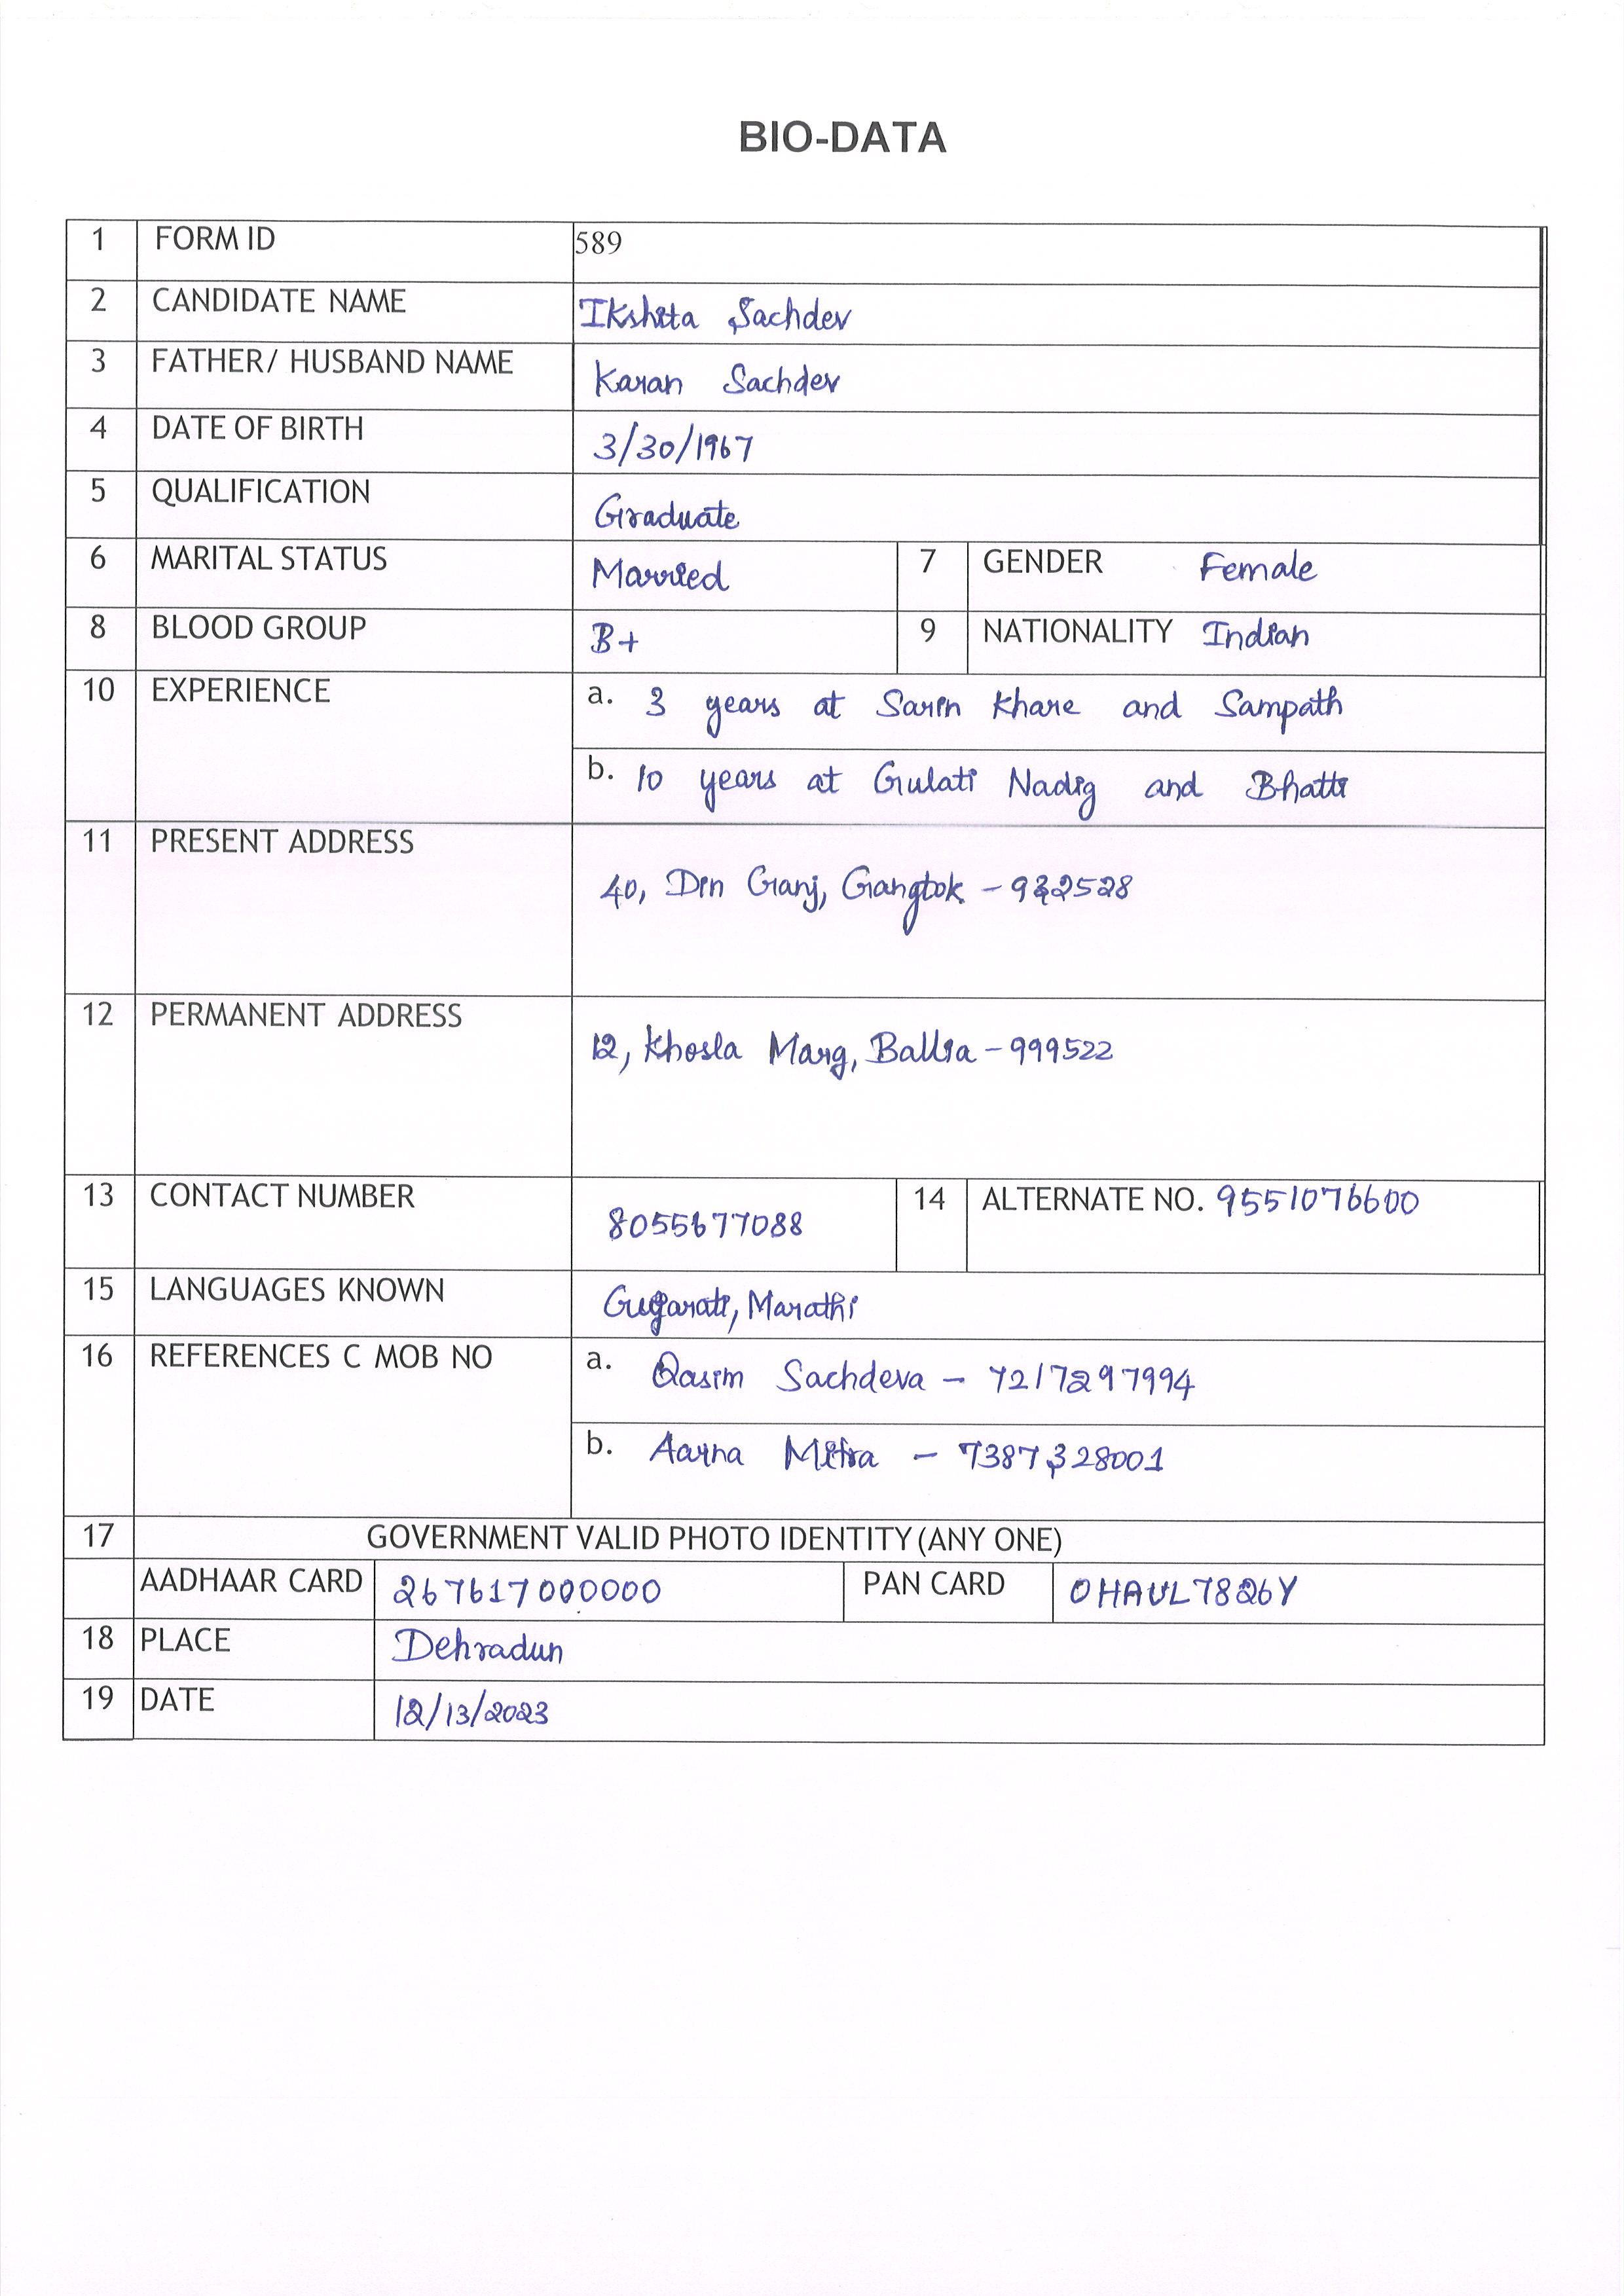 BIO-DATA
1 FORM ID 589
2 CANDIDATE NAME Ikshita Sachdev
3 FATHER/ HUSBAND NAME Karan Sachdev
4 DATE OF BIRTH 3/30/1967
5 QUALIFICATION Graduate
6 MARITAL STATUS Married 7 GENDER Female
8 BLOOD GROUP B+ 9 NATIONALITY Indian
10 EXPERIENCE a. 3 years at Sarin Khare and Sampath
b. 10 years at Gulati Nadig and Bhatti
11 PRESENT ADDRESS
40, Din Ganj, Gangtok - 932528
12 PERMANENT ADDRESS
12, Khosla Marg, Ballia - 999522
13 CONTACT NUMBER 8055677088 14 ALTERNATE NO. 9551076600
15 LANGUAGES KNOWN Gujarati, Marathi
16 REFERENCES C MOB NO a. Qasim Sachdeva - 7217297994
b. Aarna Mitra - 7387328001
17 GOVERNMENT VALID PHOTO IDENTITY (ANY ONE)
AADHAAR CARD 267617000000 PAN CARD OHAUL7826Y
18 PLACE Dehradun
19 DATE 12/13/2023